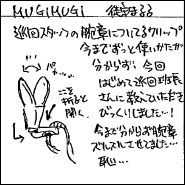 MUGIMUGI 
巡回スタッフの腕章についてるクリップ
今までずっと使いかたが
分からずい 今回
はじめて巡回班長
さんに教えていただき
びっくりしました…!
今まで分からず腕章
ズルズルさせてました…
恥…
パカッ
ここを
折ると
開く